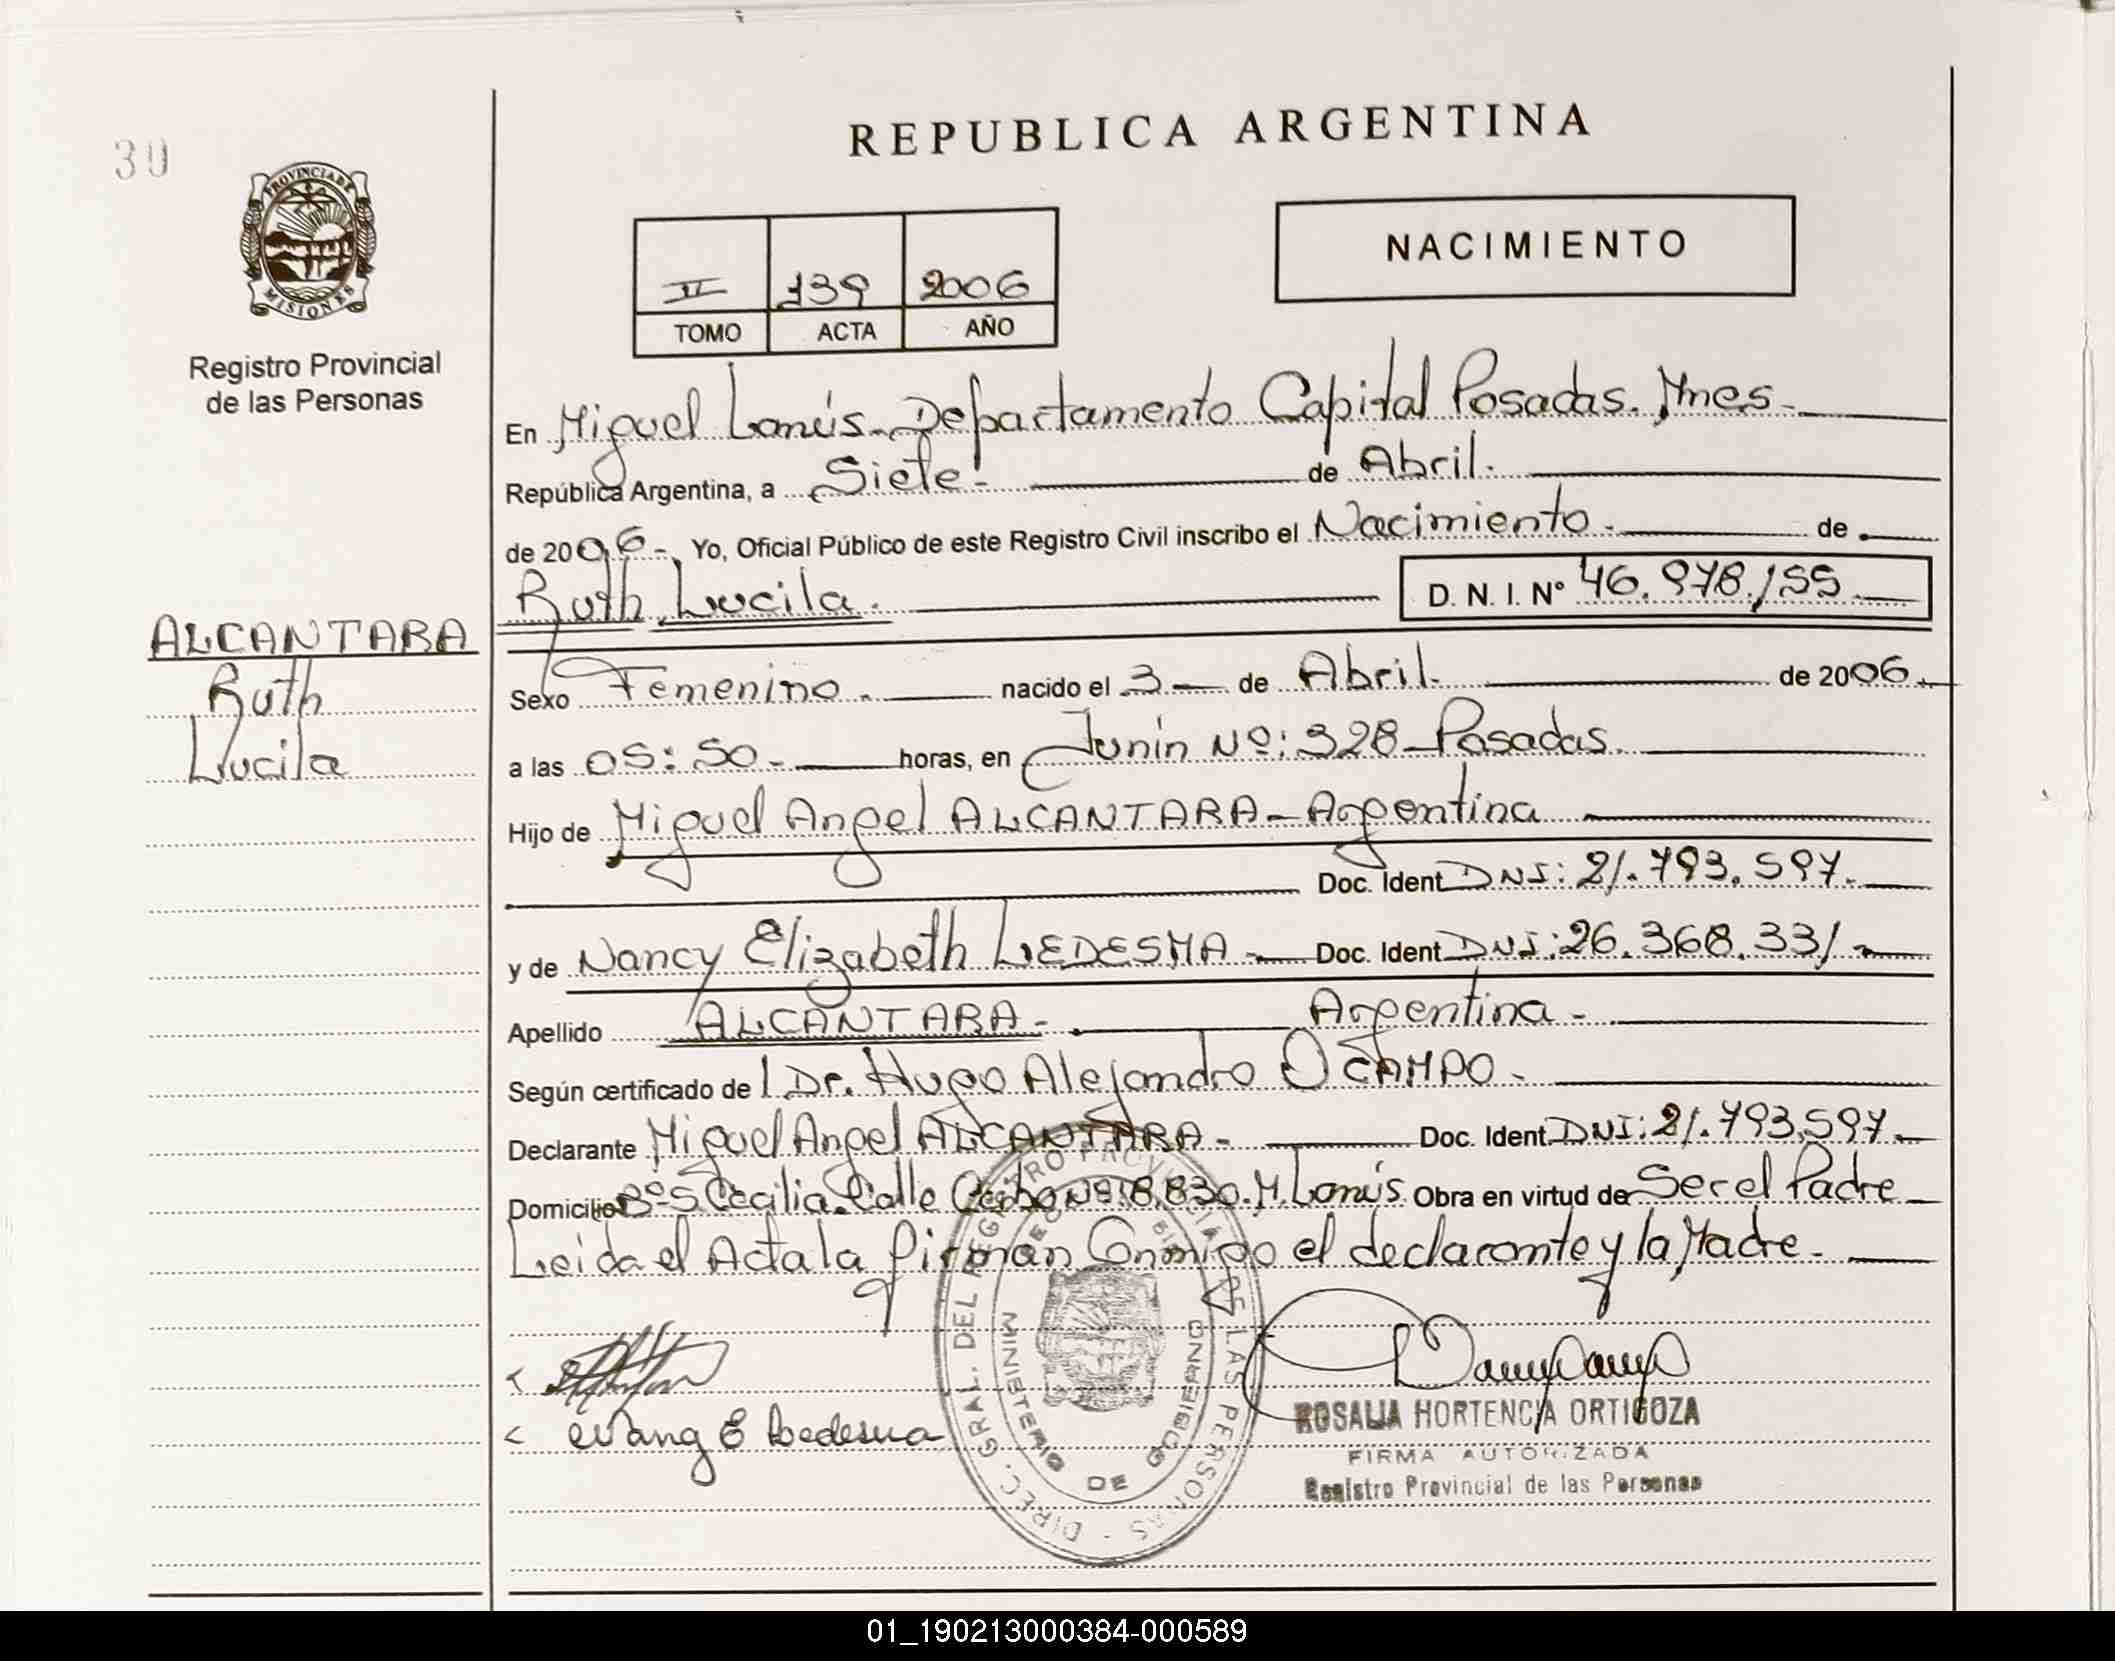 REPUBLICA ARGENTINA
30
PROVINCIA DE
MISIONES
Registro Provincial
de las Personas
NACIMIENTO
II 139 2006
TOMO ACTA AÑO
En Miguel Lanús. Departamento Capital Posadas. Mnes.
República Argentina, a Siete. de Abril.
de 2006. Yo, Oficial Público de este Registro Civil inscribo el Nacimiento. de
Ruth Lucila. D. N. I. Nº 46.978.155
ALCANTARA
Ruth
Lucila
Sexo Femenino. nacido el 3 de Abril. de 2006.
a las 05:50. horas, en Junín Nº: 328 Posadas.
Hijo de Miguel Angel ALCANTARA - Argentina
Doc. Ident DNI: 21.793.597.
y de Nancy Elizabeth LEDESMA - Doc. Ident DNI: 26.368.331.
Apellido ALCANTARA. Argentina.
Según certificado del Dr. Hugo Alejandro OCAMPO.
Declarante Miguel Angel ALCANTARA. Doc. Ident DNI: 21.793.597.
Domicilio Bº S. Cecilia. Calle Nº: 8.830. M. Lanús. Obra en virtud de Ser el Padre
Leida el Acta la firman Conmigo el declarante y la Madre.
E Ledesma
DIREC. GRAL. DEL REGISTRO PROVINCIAL DE LAS PERSONAS
MINISTERIO DE GOBIERNO
ROSALIA HORTENCIA ORTIGOZA
FIRMA AUTORIZADA
Registro Provincial de las Personas
01_190213000384-000589